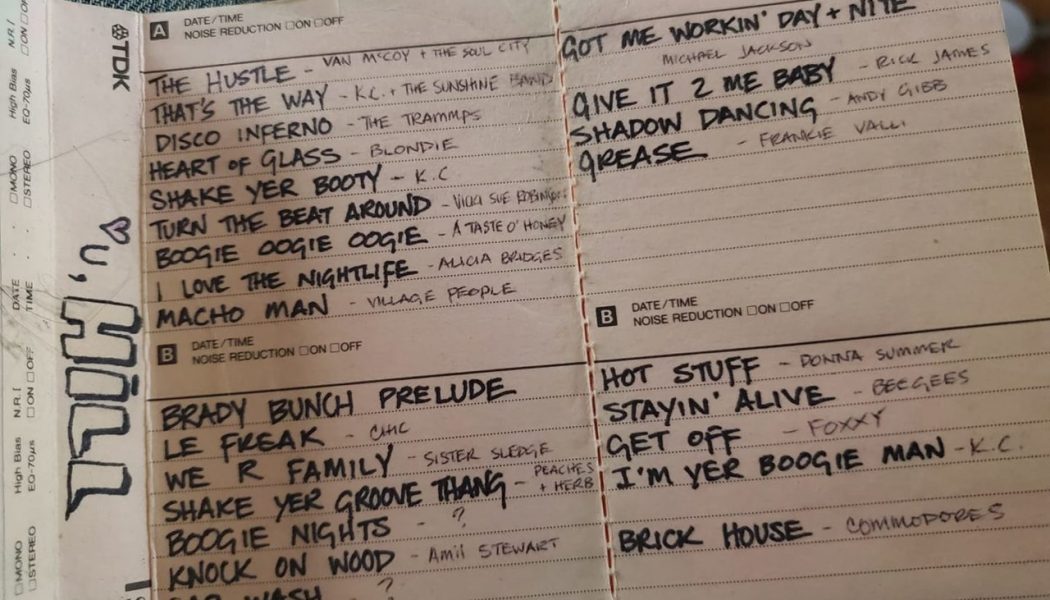 A DATE/TIME
NOISE REDUCTION □ON □OFF
THE HUSTLE - VAN McCOY + THE SOUL CITY
THAT'S THE WAY - K.C. + THE SUNSHINE BAND
DISCO INFERNO - THE TRAMMPS
HEART of GLASS - BLONDIE
SHAKE YER BOOTY - K.C
TURN THE BEAT AROUND - VICKI SUE ROBINSON
BOOGIE OOGIE OOGIE - A TASTE O' HONEY
I LOVE THE NIGHTLIFE - ALICIA BRIDGES
MACHO MAN - VILLAGE PEOPLE
B DATE/TIME
NOISE REDUCTION □ON □OFF
BRADY BUNCH PRELUDE
LE FREAK - CHIC
WE R FAMILY - SISTER SLEDGE
SHAKE YER GROOVE THANG - PEACHES
+ HERB
BOOGIE NIGHTS - ?
KNOCK ON WOOD - Amii STEWART
CAR WASH ?
GOT ME WORKIN' DAY + NITE
MICHAEL JACKSON
GIVE IT 2 ME BABY - RICK JAMES
SHADOW DANCING - ANDY GIBB
GREASE - FRANKIE VALLI
B DATE/TIME
NOISE REDUCTION □ON □OFF
HOT STUFF - DONNA SUMMER
STAYIN' ALIVE - BEEGEES
GET OFF - FOXXY
I'M YER BOOGIE MAN - K.C.
BRICK HOUSE - COMMODORES
TDK
♡ U, HILL
N.R. [
□ON □OFF
High Bias
EQ-70µs
□MONO
□STEREO
DATE :
TIME :
N.R. [
□ON □OFF
High Bias
EQ-70µs
□MONO
□STEREO